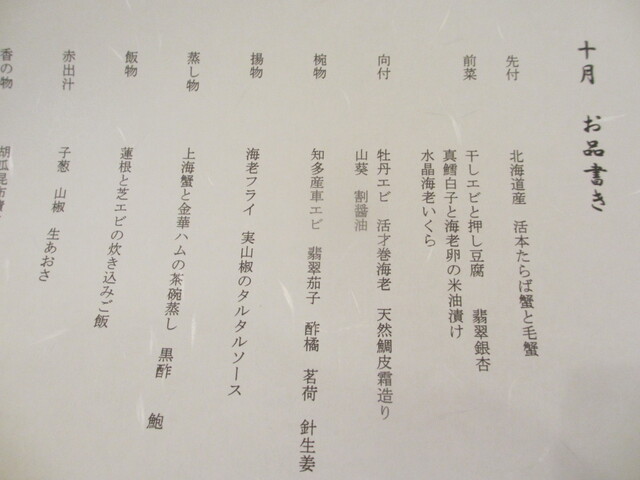 十月 お品書き
先付 北海道産 活本たらば蟹と毛蟹
前菜 干しエビと押し豆腐 翡翠銀杏
真鱈白子と海老卵の米油漬け
水晶海老いくら
向付 牡丹エビ 活才巻海老 天然鯛皮霜造り
山葵 割醤油
椀物 知多産車エビ 翡翠茄子 酢橘 茗荷 針生姜
揚物 海老フライ 実山椒のタルタルソース
蒸し物 上海蟹と金華ハムの茶碗蒸し 黒酢 鮑
飯物 蓮根と芝エビの炊き込みご飯
赤出汁 子葱 山椒 生あおさ
香の物 胡瓜昆布